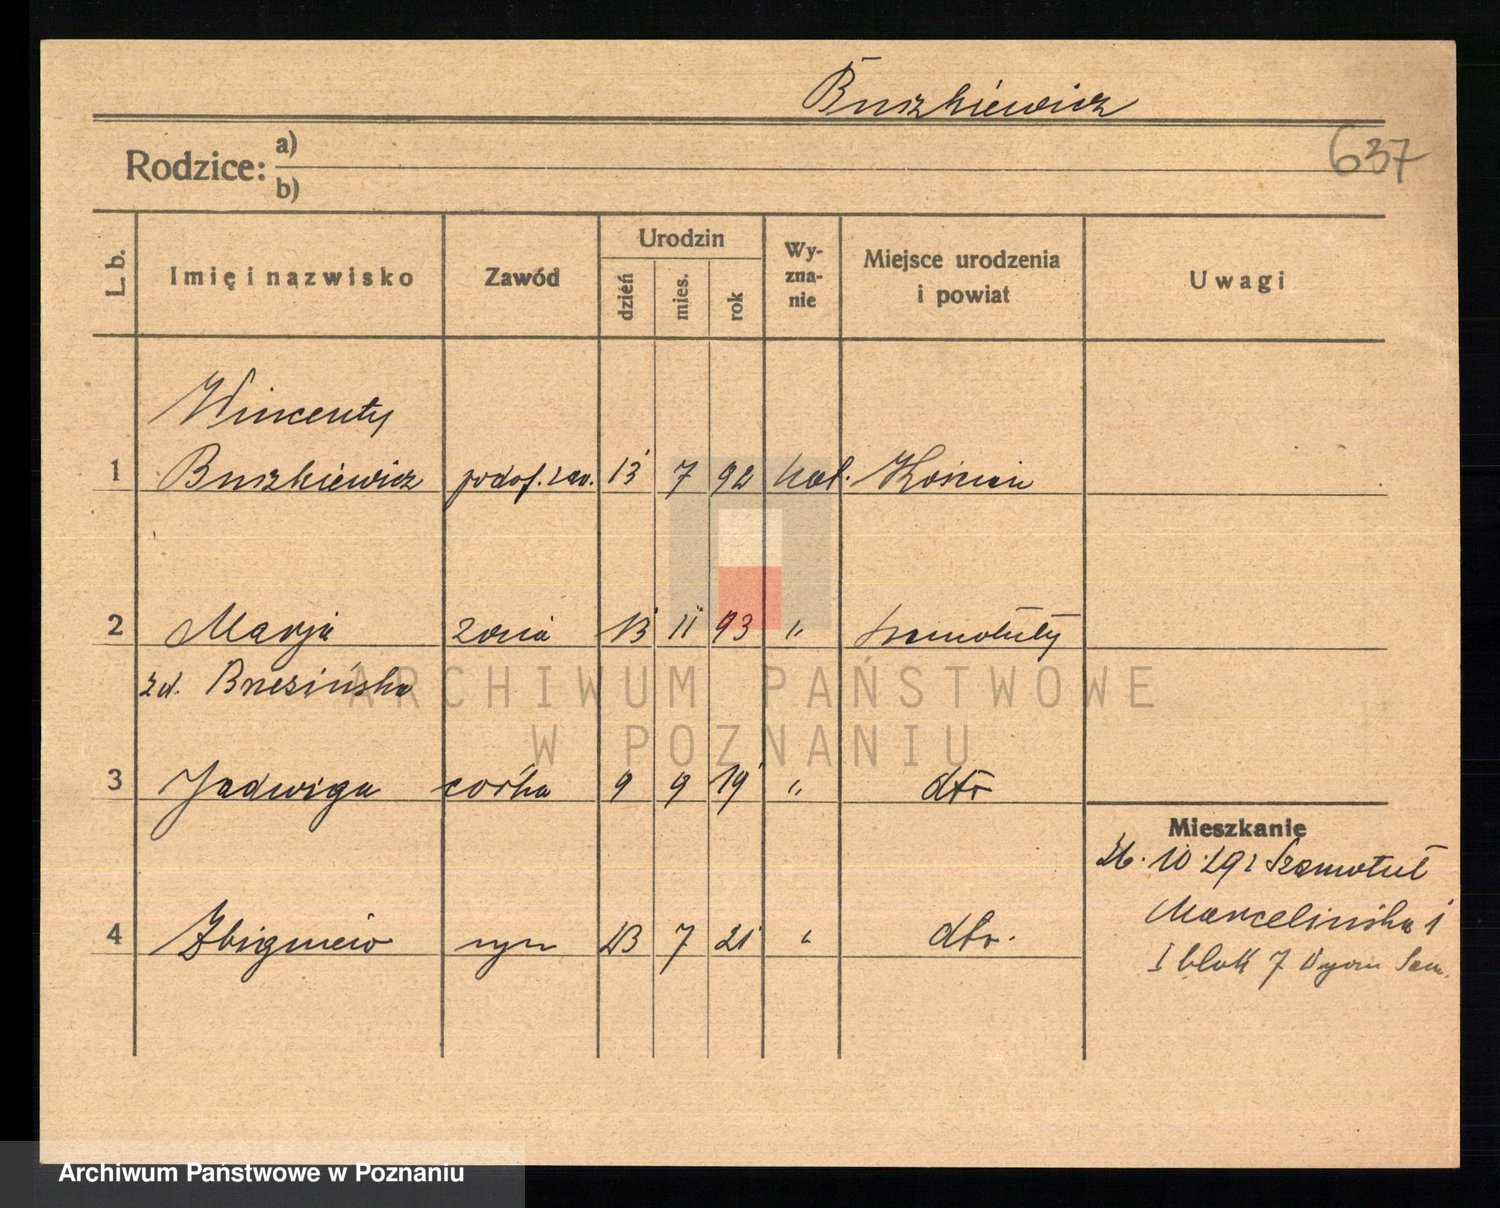 Buszkiewicz
637
Rodzice: a)
b)
L. b.
Imię i nazwisko
Zawód
Urodzin
dzień
mies.
rok
Wy-
zna-
nie
Miejsce urodzenia
i powiat
Uwagi
Wincenty
1 Buszkiewicz podof. zaw. 13 7 92 kat. Kościan
2 Marja żona 13 11 93 " Szamotuły
zd. Brzezińska
3 Jadwiga córka 9 9 19 " dto
4 Zbigniew syn 23 7 21 " dto.
Mieszkanie
26. 10 29 z Szamotuł
Marcelińska 1
I blok 7
ARCHIWUM PAŃSTWOWE
W POZNANIU
Archiwum Państwowe w Poznaniu